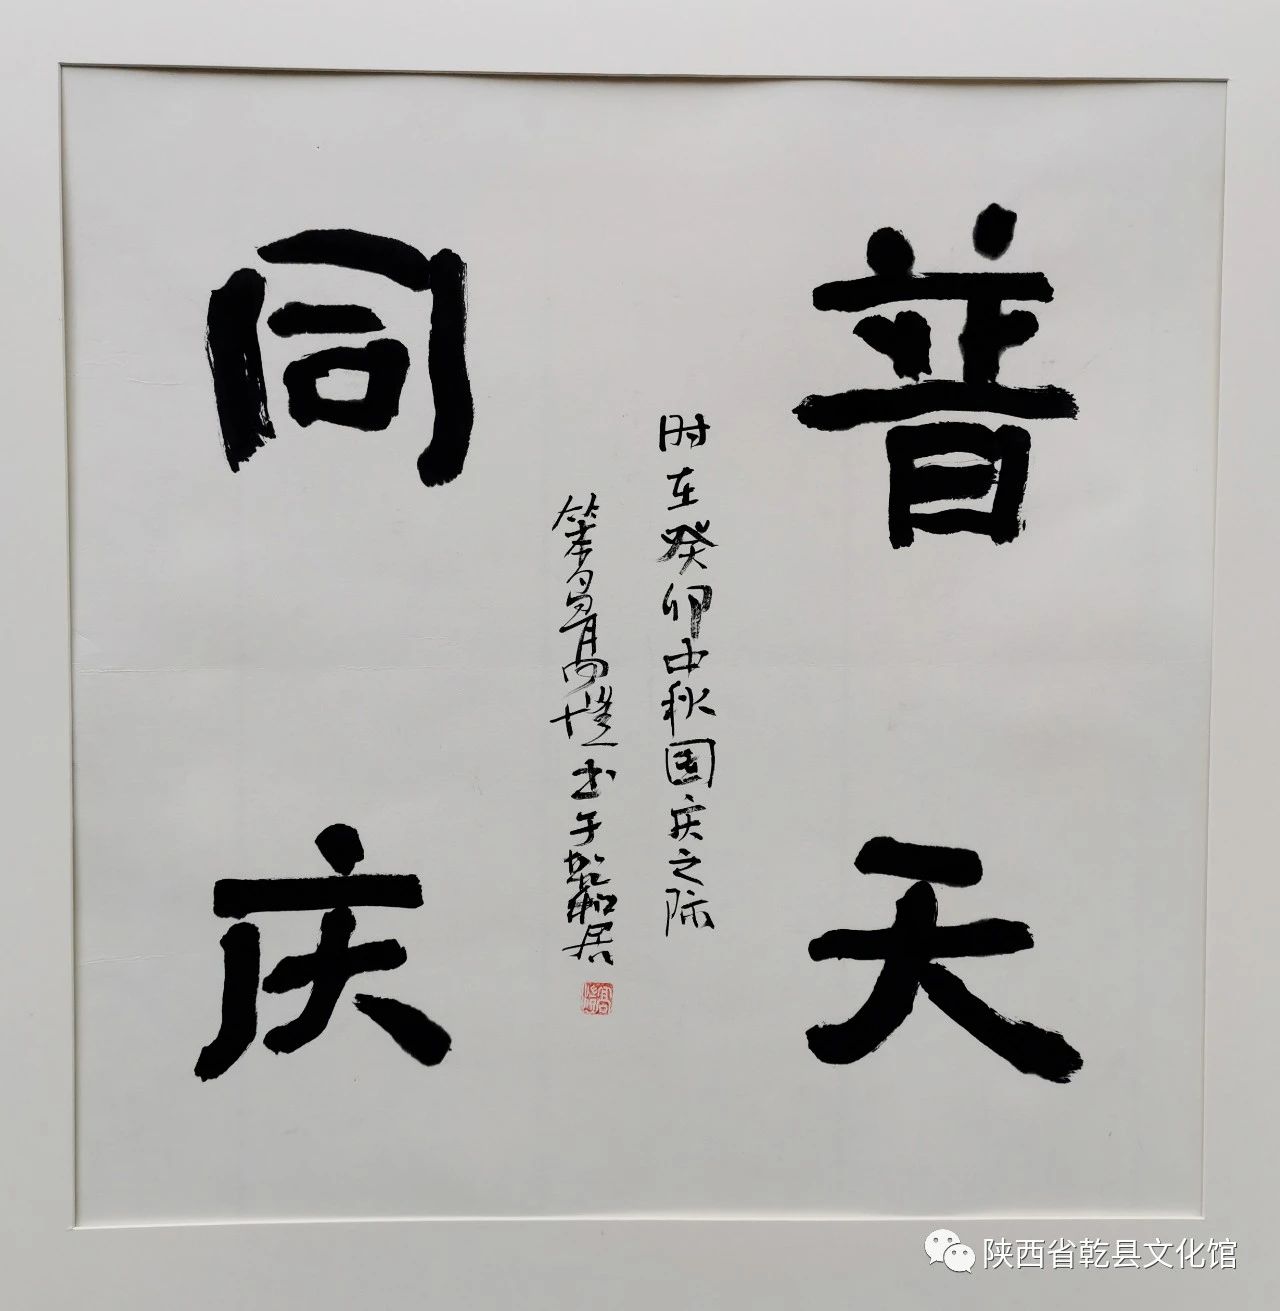 普天
同庆
时在癸卯中秋国庆之际
书于乾和居
陕西省乾县文化馆